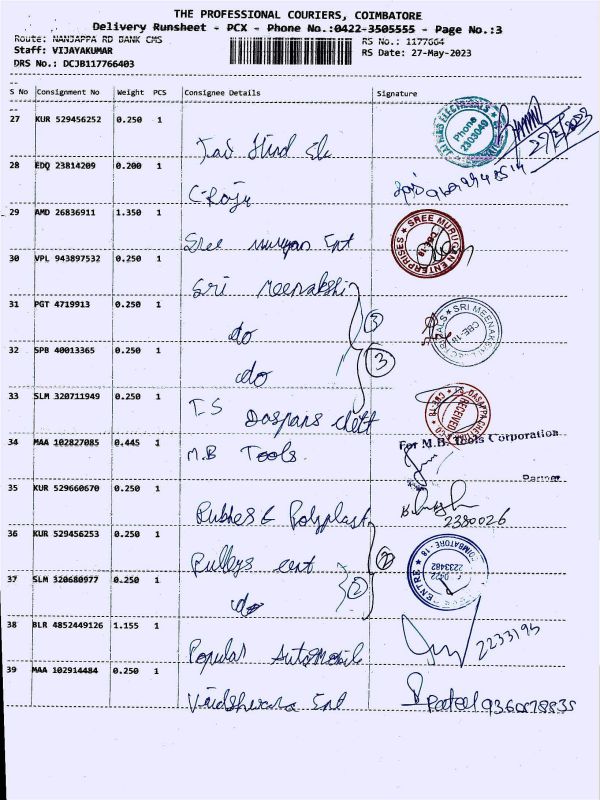 THE PROFESSIONAL COURIERS, COIMBATORE
Delivery Runsheet - PCX - Phone No.:0422-3505555 - Page No.:3
Route: NANJAPPA RD BANK CMS
RS No.: 1177664
Staff: VIJAYAKUMAR
RS Date: 27-May-2023
DRS No.: DCJB117766403
S No Consignment No Weight PCS Consignee Details Signature
27 KUR 529456252 0.250 1
Phone 2303049
28 EDQ 23814209 0.200 1
C-Raju
29 AMD 26836911 1.350 1
Sree murugan Ent
SREE MURUGAN ENTERPRISES
30 VPL 943897532 0.250 1
Sri meenakshi
31 PGT 4719913 0.250 1
do
3
SRI MEENAKSHI
CBE-18
32 SPB 40013365 0.250 1
do
3
33 SLM 320711949 0.250 1
T.S
RECEIVED
34 MAA 102827085 0.445 1
M.B Tools.
For M.B. Tools Corporation
Partner
35 KUR 529660670 0.250 1
2380026
36 KUR 529456253 0.250 1
Pulleys cent
COIMBATORE - 18
2233482
0422
37 SLM 320680977 0.250 1
do
2
38 BLR 4852449126 1.155 1
Popular Automobile
2233195
39 MAA 102914484 0.250 1
Ent